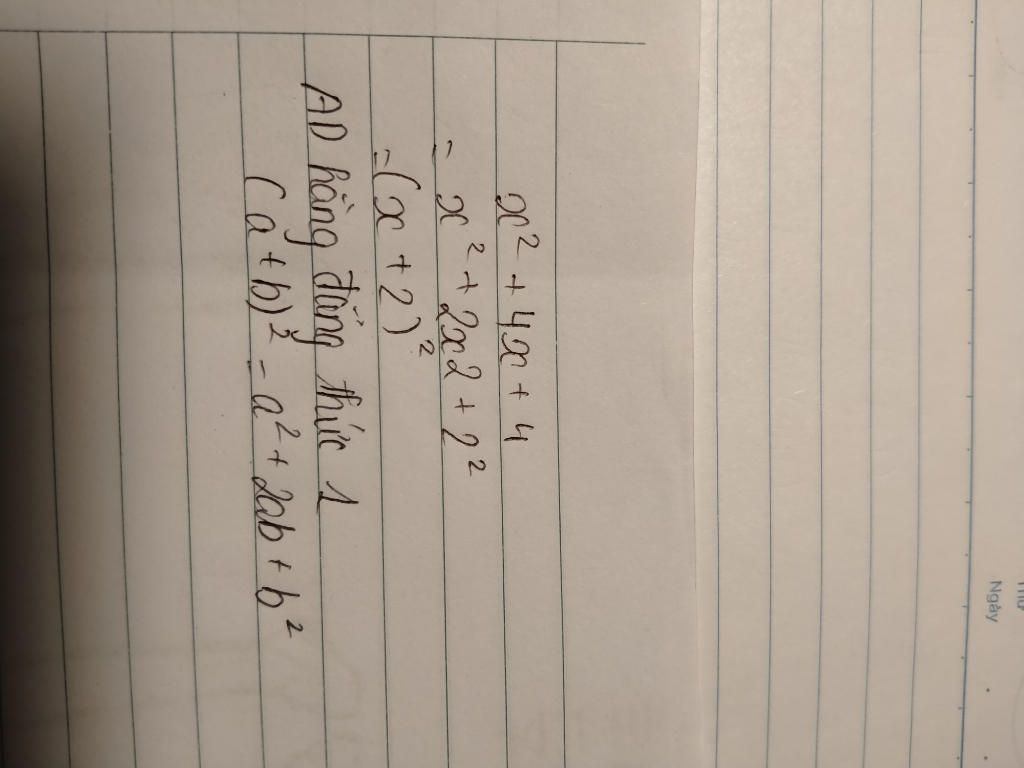 x² + 4x + 4
= x² + 2x2 + 2²
= (x + 2)²
AD hằng đẳng thức 1
(a + b)² = a² + 2ab + b²
Ngày